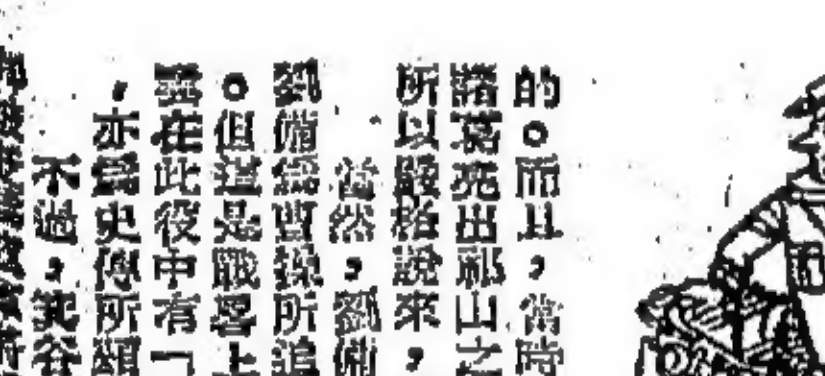 的。而且，當時
諸葛亮出祁山之
所以嚴格說來，
當然，劉備
劉備為曹操所追
。但這是戰略上
雲在此役中有「
，亦為史傳所
不過，箕谷